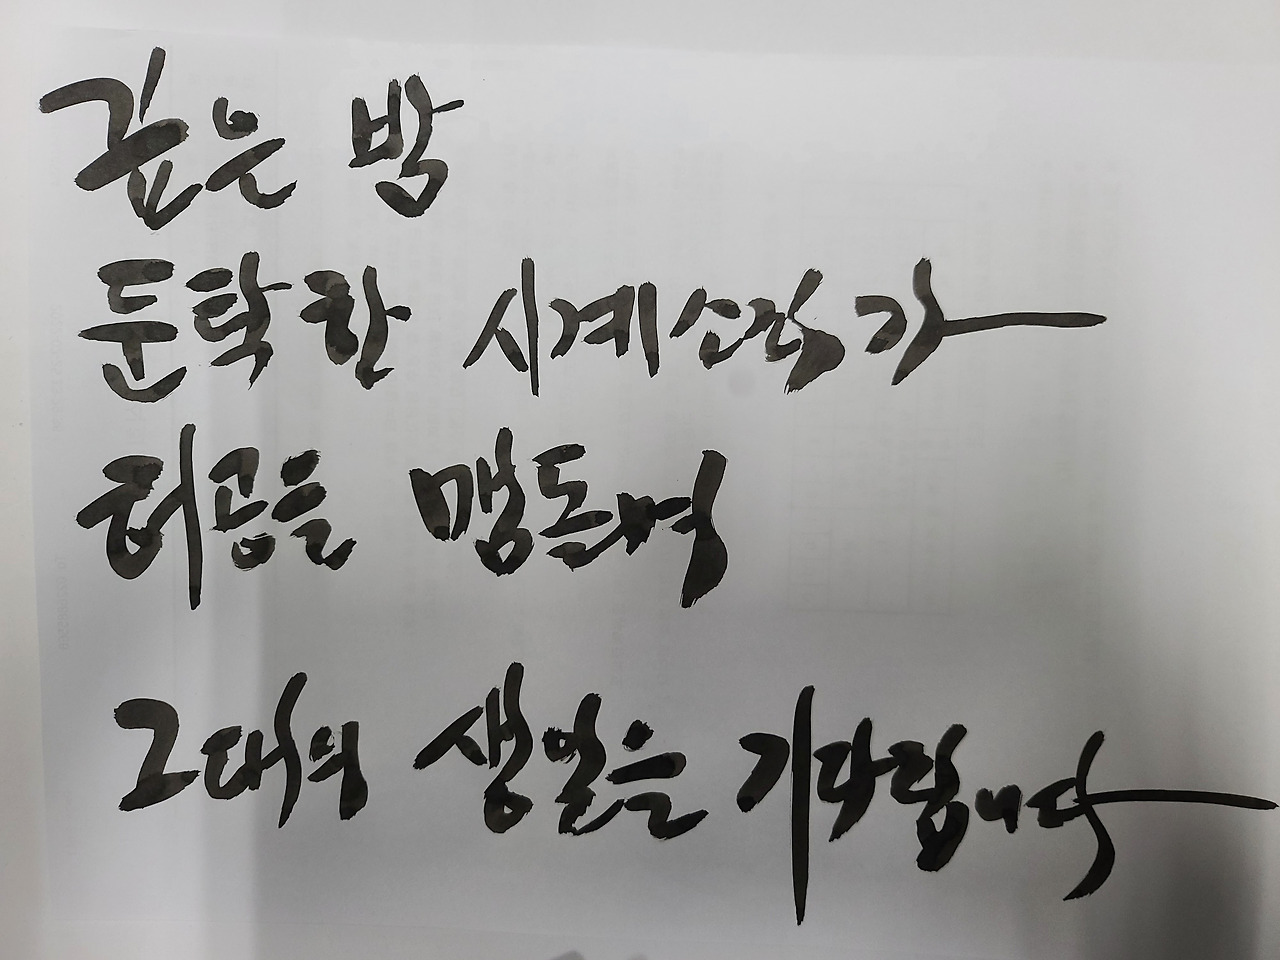 깊은 밤
둔탁한 시계소리가
허공을 맴돌며
그대의 생일을 기다립니다